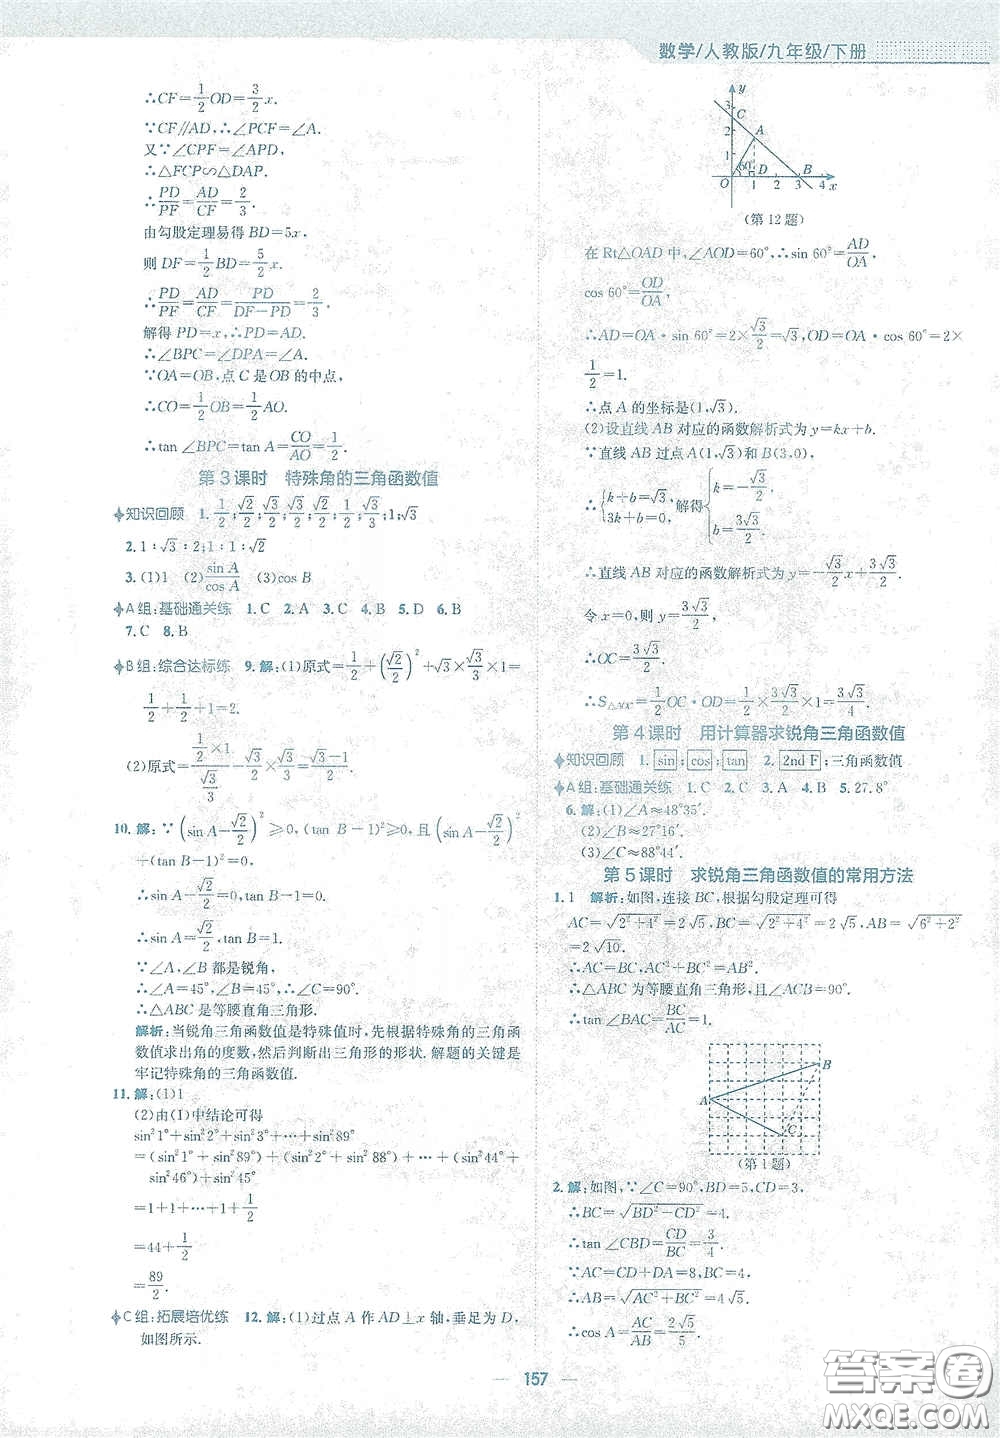 数学/人教版/九年级/下册
∴CF=1/2 OD=3/2 x.
∵CF∥AD,∴∠PCF=∠PAD.
又∵∠CPF=∠APD,
∴△FCP∽△DAP.
∴PD/PF=AD/CF=2/3
由勾股定理易得BD=5x,
则DF=1/2 BD=5/2 x.
∴PD/PF=AD/CF=PD/(DF-PD)=2/3.
解得PD=x,∴PD=AD.
∴∠BPC=∠DPA=∠A.
∵OA=OB,点C是OB的中点,
∴CO=1/2 OB=1/2 AO.
∴tan∠BPC=tan A=CO/AO=1/2.
第3课时 特殊角的三角函数值
知识回顾 1. 1/2;√2/2;√3/2;√3/2;√2/2;1/2;√3/3;1;√3
2. 1∶√3∶2;1∶1∶√2
3. (1)1 (2)sin A/cos A (3)cos B
A组:基础通关练 1.C 2.A 3.C 4.A 5.D 6.B
7.C 8.B
B组:综合达标练 9.解:(1)原式=1/2+(√2/2)²+√3×√3/3×1=
1/2+1/2+1=2.
(2)原式=(1/2×1)/(√3/3)=√3/2=
10.解:∵(sin A-√2/2)²≥0,(tan B-1)²≥0,且(sin A-√2/2)²
+(tan B-1)²=0,
∴sin A-√2/2=0,tan B-1=0.
∴sin A=√2/2,tan B=1.
∵∠A,∠B都是锐角,
∴∠A=45°,∠B=45°,∠C=90°.
∴△ABC是等腰直角三角形.
解析:当锐角三角函数值是特殊值时,先根据特殊角的三角函
数值求出角的度数,然后判断出三角形的形状.解题的关键是
牢记特殊角的三角函数值.
11.解:(1)1
(2)由(1)中结论可得
sin²1°+sin²2°+sin²3°+…+sin²89°
=(sin²1°+sin²89°)+(sin²2°+sin²88°)+…+(sin²44°+
sin²46°)+sin²45°
=1+1+…+1+1/2
=44+1/2
=89/2.
C组:拓展培优练 12.解:(1)过点A作AD⊥x轴,垂足为D,
如图所示.
y
3
2
1
C
A
60°
D
B
O
1 2 3 4 x
(第12题)
在Rt△OAD中,∠AOD=60°,∴sin 60°=AD/OA,
cos 60°=OD/OA,
∴AD=OA·sin 60°=2×√3/2=√3,OD=OA·cos 60°=2×
1/2=1.
∴点A的坐标是(1,√3).
(2)设直线AB对应的函数解析式为y=kx+b.
∵直线AB过点A(1,√3)和B(3,0),
∴{k+b=√3, 3k+b=0. 解得{k=-√3/2, b=3√3/2.
∴直线AB对应的函数解析式为y=-√3/2 x+3√3/2.
令x=0,则y=3√3/2,
∴OC=3√3/2.
=1/2 OC·OD=1/2×3√3/2×1=3√3/4.
第4课时 用计算器求锐角三角函数值
知识回顾 1. sin;cos;tan 2. 2nd F;三角函数值
A组:基础通关练 1.C 2.C 3.A 4.B 5.27.8°
6.解:(1)∠A≈48°35′.
(2)∠B≈27°16′.
(3)∠C≈88°44′.
第5课时 求锐角三角函数值的常用方法
1. 1 解析:如图,连接BC,根据勾股定理可得
AC=√(2²+4²)=2√5,BC=√(2²+4²)=2√5,AB=√(6²+2²)
=2√10.
∴AC=BC,AC²+BC²=AB².
∴△ABC为等腰直角三角形,且∠ACB=90°.
∴tan∠BAC=BC/AC=1.
A
B
C
(第1题)
2.解:如图,∵∠C=90°,BD=5,CD=3,
∴BC=√(BD²-CD²)=4.
∴tan∠CBD=CD/BC=3/4.
∵AC=CD+DA=8,
∴AB=√(AC²+BC²)=4√5.
∴cos A=AC/AB=2√5/5.
157
答案圈
MXQE.COM